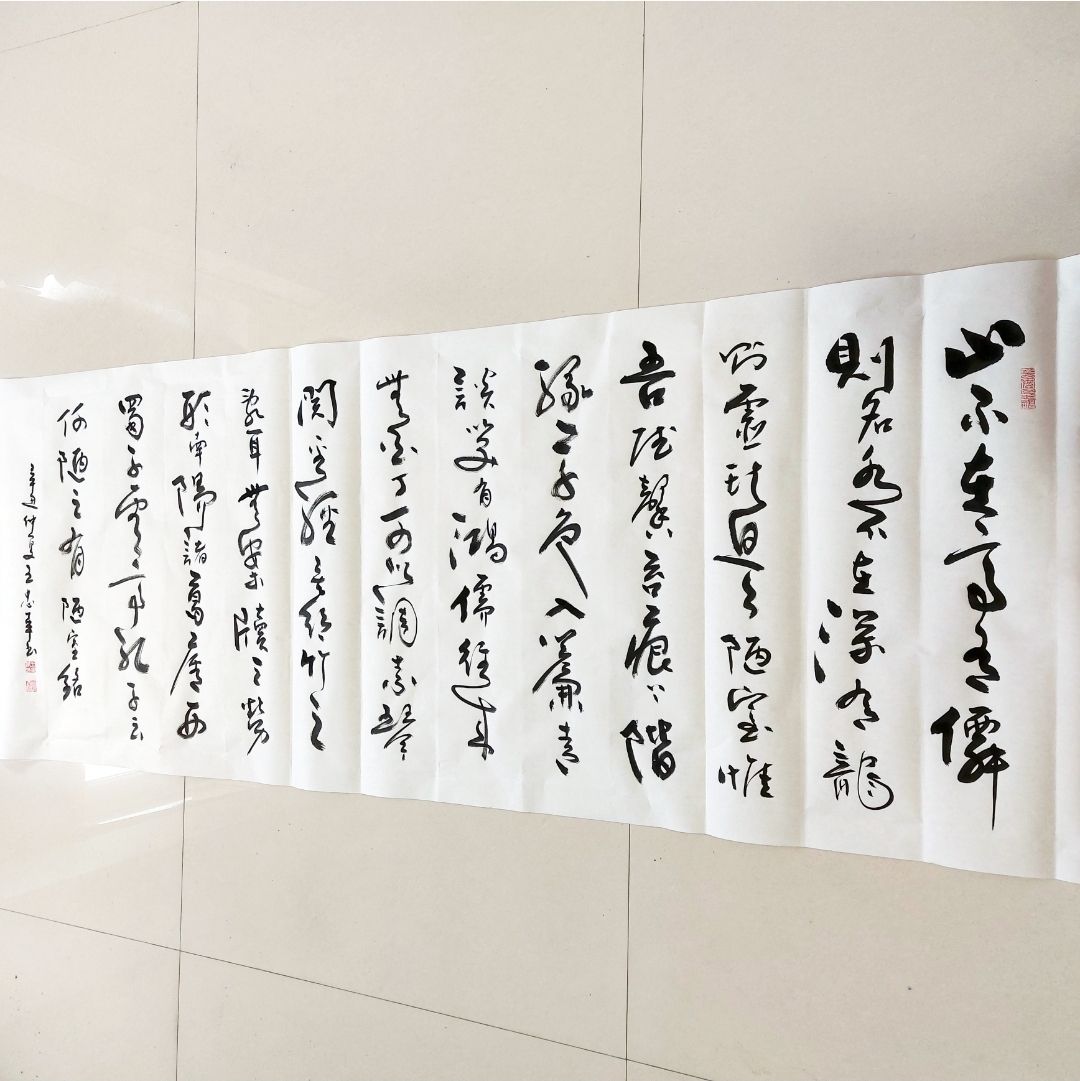 山不在高有僊
則名水不在深有龍
則靈斯是陋室惟
吾德馨苔痕上階
綠草色入簾青
談笑有鴻儒往來
無白丁可以調素琴
閱金經無絲竹之
亂耳無案牘之勞
形南陽諸葛廬西
蜀子雲亭孔子云
何陋之有陋室銘
辛丑仲夏王志書